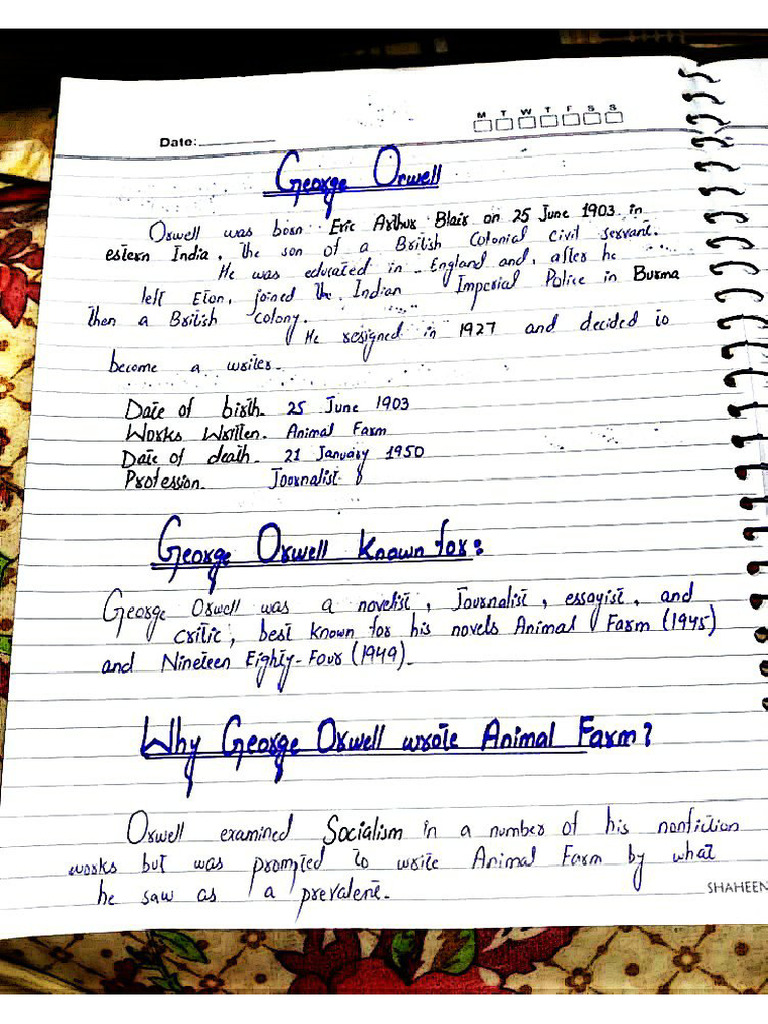 M T W T F S S
Date:
George Orwell
Orwell was born Eric Arthur Blair on 25 June 1903 in
estern India, the son of a British Colonial civil servant.
He was educated in England and, after he
left Eton, joined the Indian Imperial Police in Burma
then a British colony.
He resigned in 1927 and decided to
become a writer.
Date of birth. 25 June 1903
Works Written. Animal Farm
Date of death. 21 January 1950
Profession. Journalist
George Orwell Known for:
George Orwell was a novelist, Journalist, essayist, and
critic, best known for his novels Animal Farm (1945)
and Nineteen Eighty-Four (1949).
Why George Orwell wrote Animal Farm?
Orwell examined Socialism in a number of his nonfiction
works but was prompted to write Animal Farm by what
he saw as a prevalent.
SHAHEEN